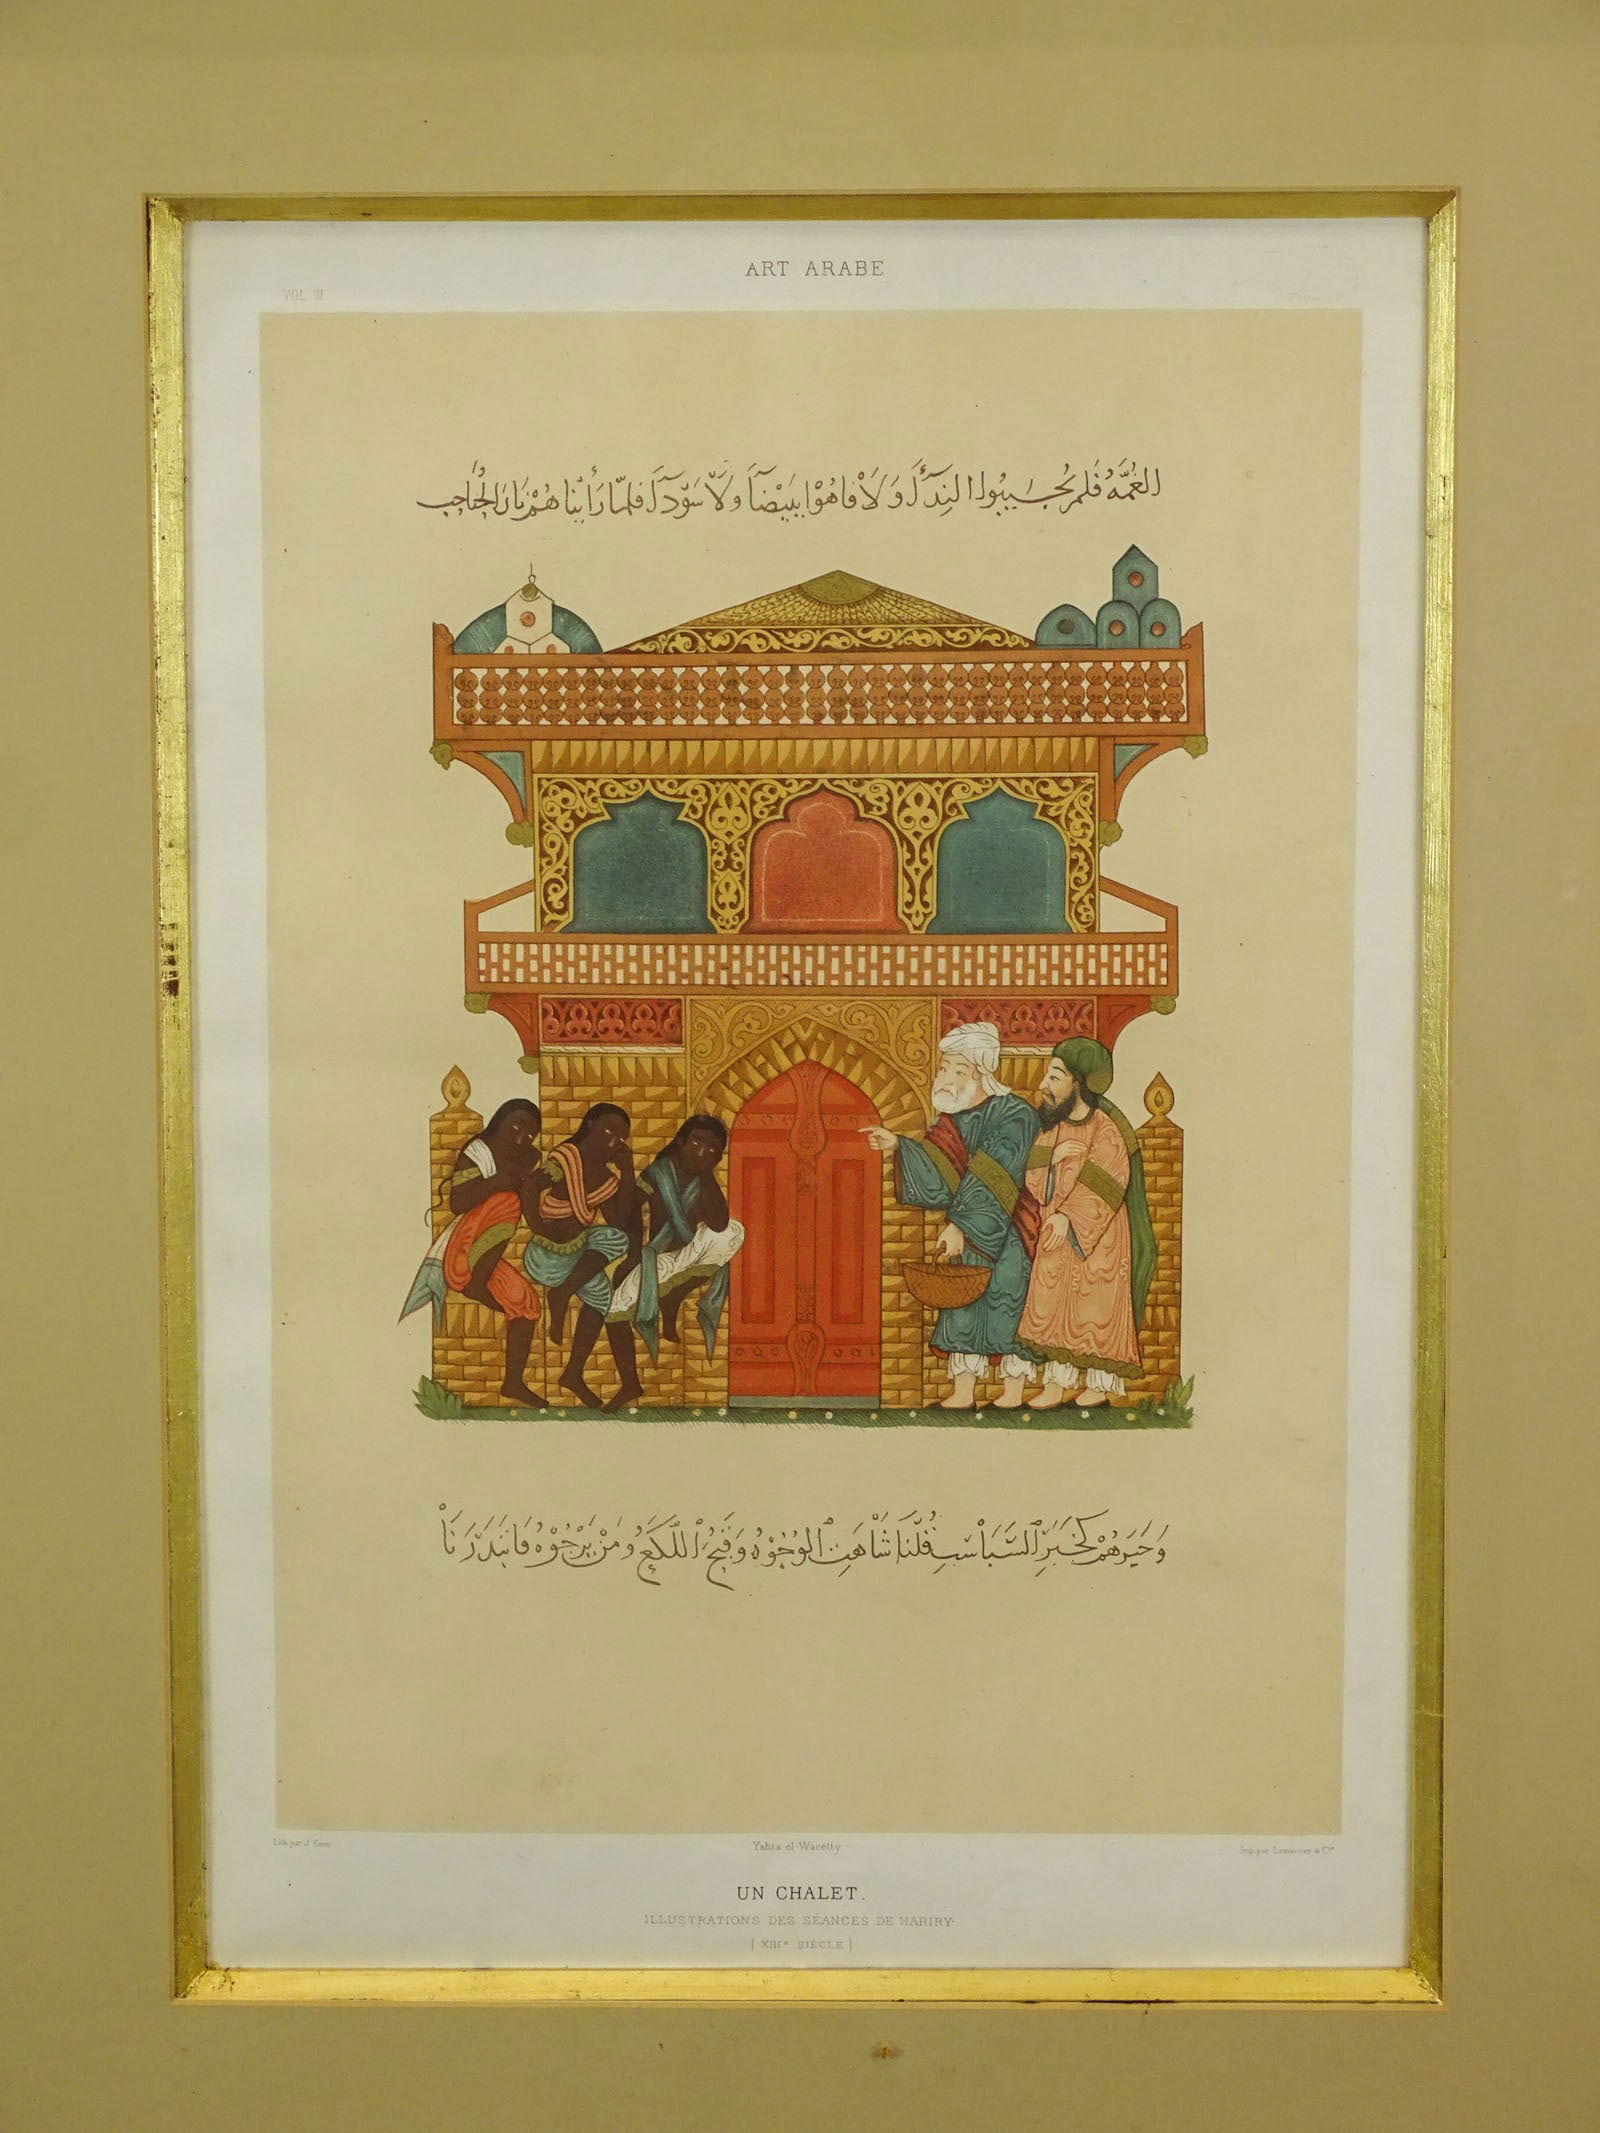 ART ARABE
VOL. III
الغُمَّه فَلَم يُجيبُوا النِدَآءَ وَلَا فاهُوْا ببَيْضَآءَ ولَا سَوْدَآءَ فلمّا رَأيْنا هُمْ نارَ الحُباحِبِ
وَخَبَرهُمْ كَخَبَرِ السَّبَاسَبِ قُلْنَا شَاهَتِ الوُجُوْهُ وَقَبُحَ اللُّكَعُ وَمَنْ يَرْجُوْهُ فَابْتَدَرَنَا
Lith. par J. Gem
Yahia el-Wacetty
Imp. par Lemercier & Cie
UN CHALET.
ILLUSTRATIONS DES SÉANCES DE HARIRY.
( XIIIe SIÈCLE )